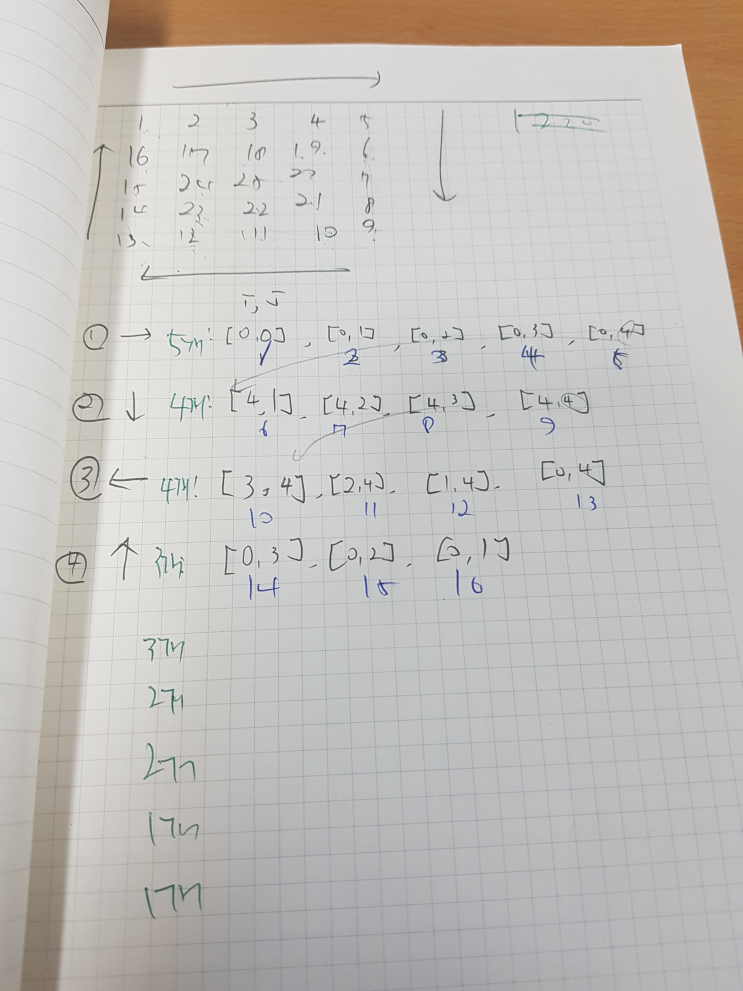 1 2 3 4 5
16 17 18 19 6
15 24 25 20 7
14 23 22 21 8
13 12 11 10 9
i, j
① → 5개: [0,0], [0,1], [0,2], [0,3], [0,4]
1 2 3 4 5
② ↓ 4개: [4,1], [4,2], [4,3], [4,4]
6 7 8 9
③ ← 4개: [3,4], [2,4], [1,4], [0,4]
10 11 12 13
④ ↑ 3개: [0,3], [0,2], [0,1]
14 15 16
3개
2개
2개
1개
1개